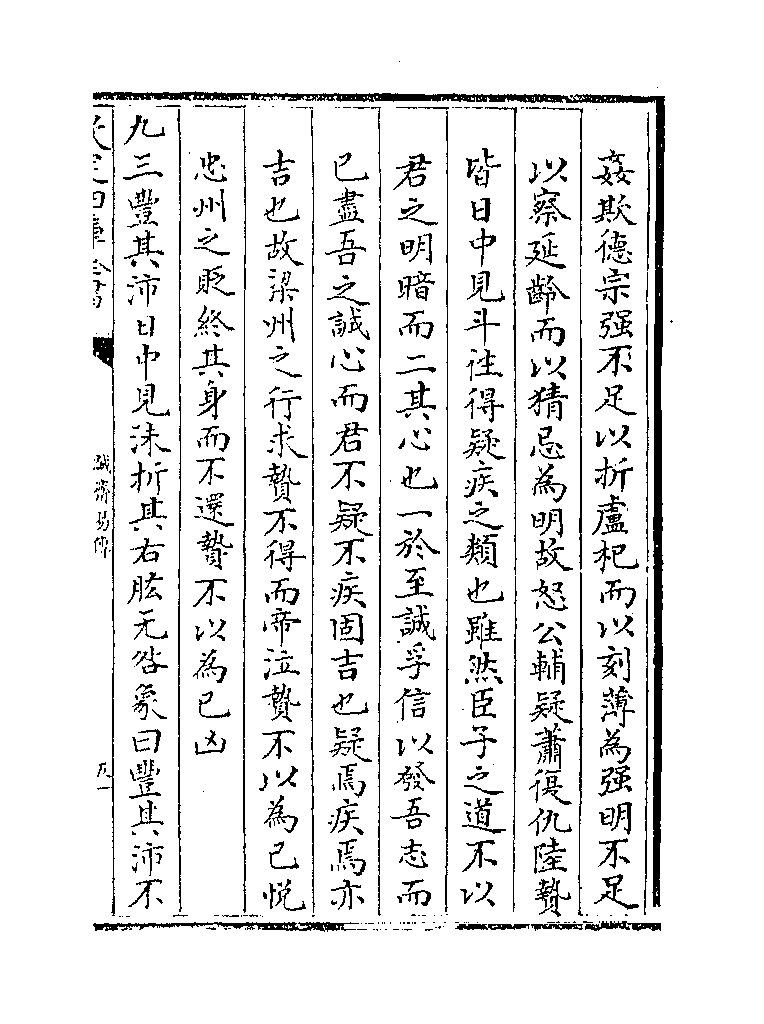 姦欺德宗强不足以折盧杞而以刻薄為强明不足
以察延齡而以猜忌為明故怒公輔疑蕭復仇陸贄
皆日中見斗往得疑疾之類也雖然臣子之道不以
君之明暗而二其心也一於至誠孚信以發吾志而
已盡吾之誠心而君不疑不疾固吉也疑焉疾焉亦
吉也故梁州之行求贄不得而帝泣贄不以為已悦
忠州之貶終其身而不還贄不以為已凶
九三豐其沛日中見沬折其右肱无咎象曰豐其沛不
欽定四庫全書
誠齋易傳
五一